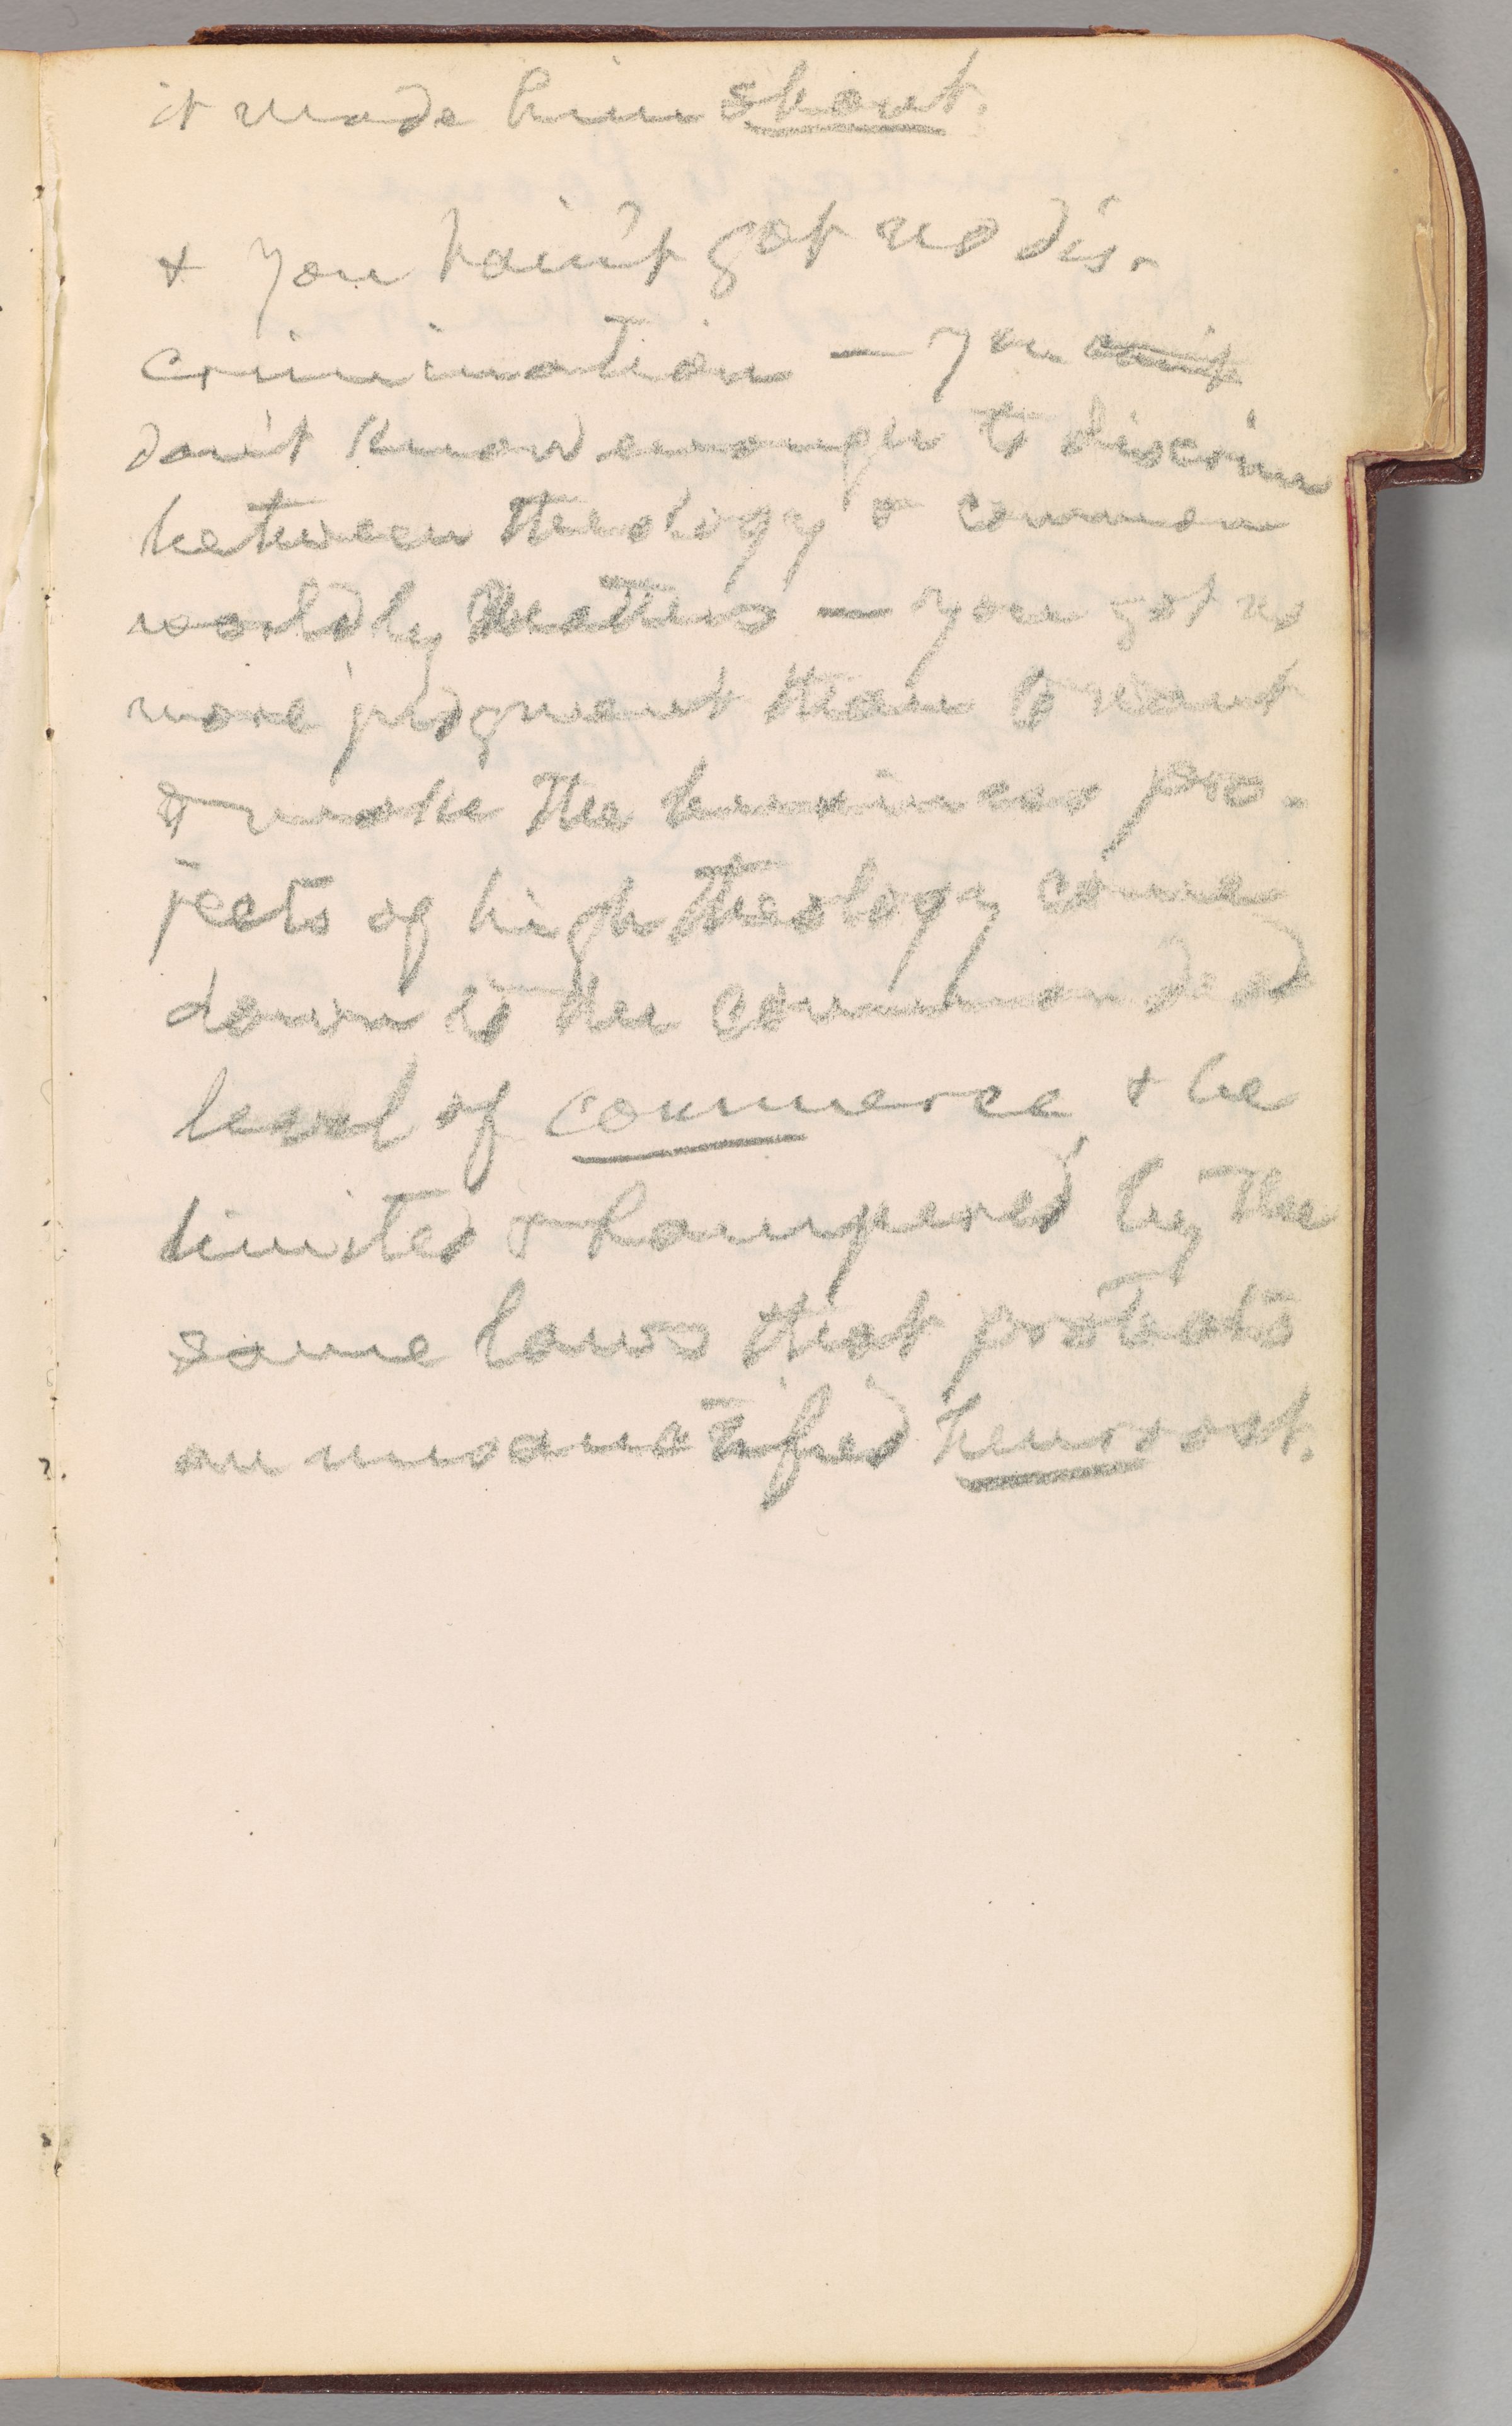 it made him shout.
& you hain't got no dis-
crimination — you can't
don't know enough to discrim
between theology & common
worldly matters — you got no
more judgment than to want
to make the business pro-
jects of high theology come
down to the common dead
level of commerce, & be
limited & hampered by the
same laws that protects
an unsanctified henroost.